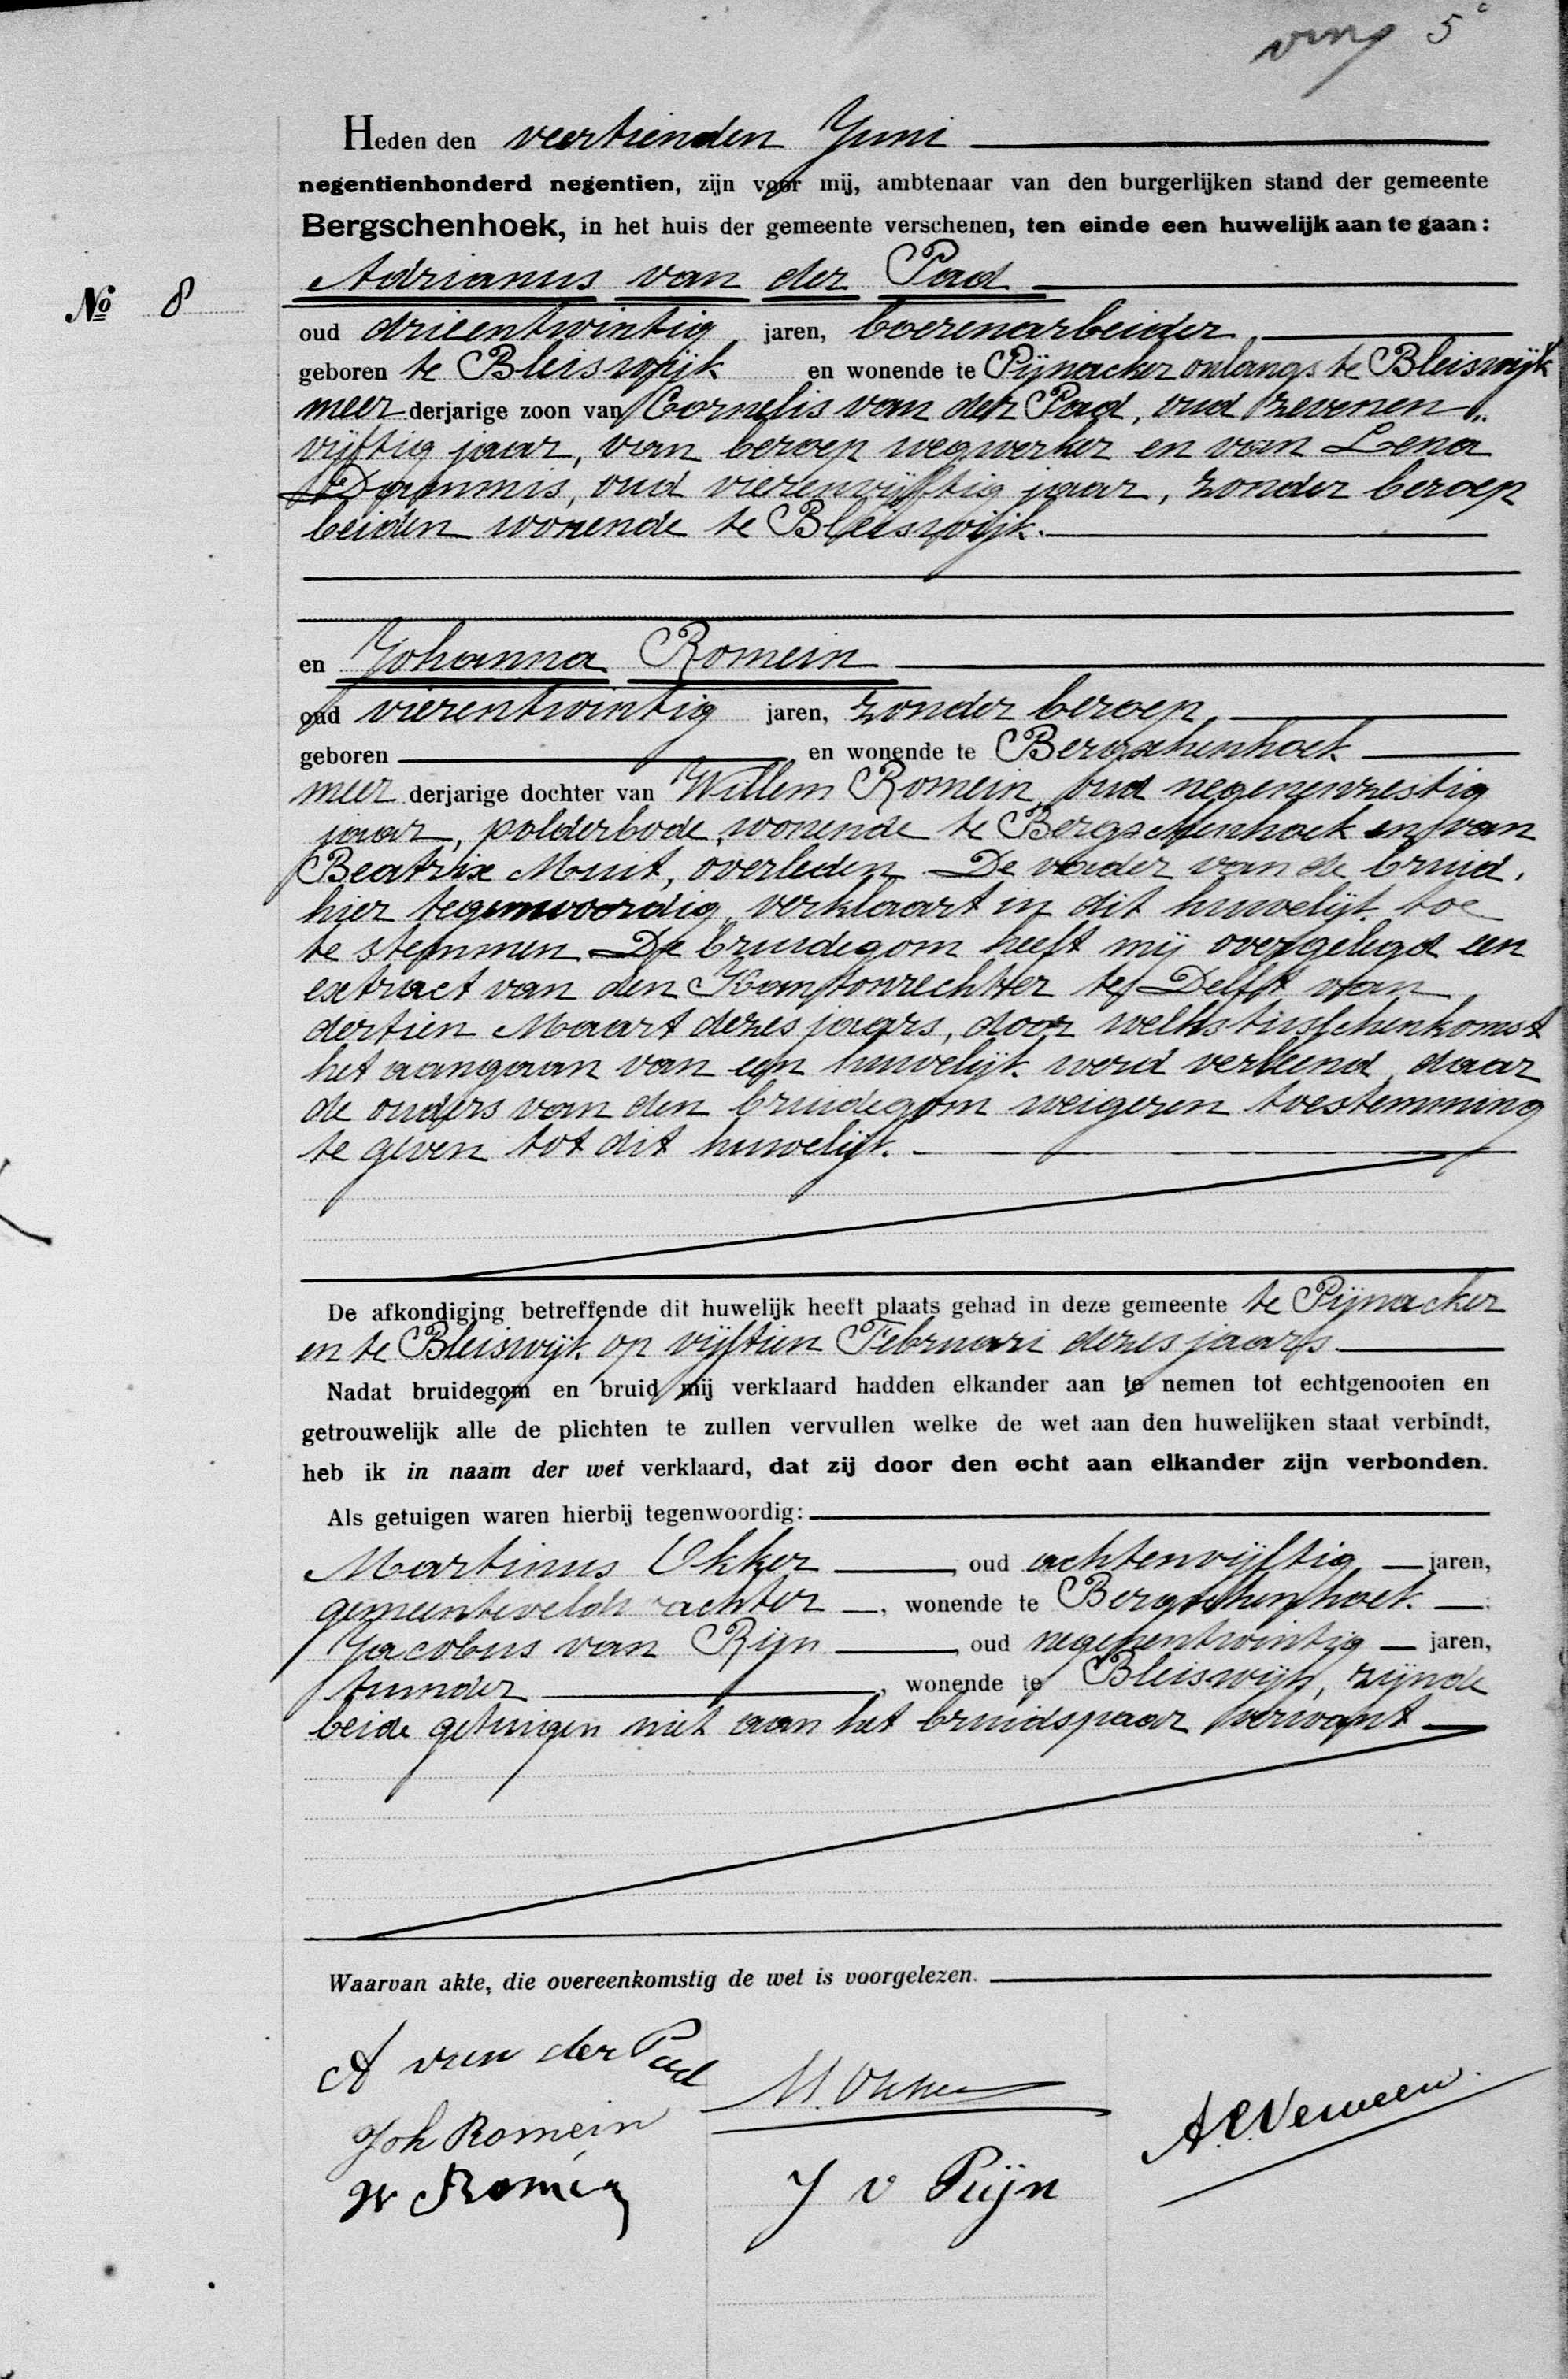 5
Heden den veertienden Juni
negentienhonderd negentien, zijn voor mij, ambtenaar van den burgerlijken stand der gemeente
Bergschenhoek, in het huis der gemeente verschenen, ten einde een huwelijk aan te gaan:
Adrianus van der Pad
No 8
oud drieentwintig jaren, boerenarbeider
geboren te Bleiswijk en wonende te Pijnacker onlangs te Bleiswijk
meer derjarige zoon van Cornelis van der Pad, oud zevenen„
vijftig jaar, van beroep wegwerker en van Lena
Dammis, oud vierenvijftig jaar, zonder beroep
beiden wonende te Bleiswijk.
en Johanna Romein
oud vierentwintig jaren, zonder beroep,
geboren en wonende te Bergschenhoek
meer derjarige dochter van Willem Romein oud negenenzestig
jaar, polderbode, wonende te Bergschenhoek en van
Beatrix Muit, overleden. De vader van de bruid,
hier tegenwoordig, verklaart in dit huwelijk toe
te stemmen De bruidegom heeft mij overgelegd een
extract van den Kantonrechter te Delft van
dertien Maart dezes jaars, door welks tusschenkomst
het aangaan van een huwelijk werd verleend, daar
de ouders van den bruidegom weigeren toestemming
te geven tot dit huwelijk.
De afkondiging betreffende dit huwelijk heeft plaats gehad in deze gemeente te Pijnacker
en te Bleiswijk op vijftien Februari dezes jaars.
Nadat bruidegom en bruid mij verklaard hadden elkander aan te nemen tot echtgenooten en
getrouwelijk alle de plichten te zullen vervullen welke de wet aan den huwelijken staat verbindt,
heb ik in naam der wet verklaard, dat zij door den echt aan elkander zijn verbonden.
Als getuigen waren hierbij tegenwoordig:
Martinus Okker, oud achtenvijftig jaren,
gemeenteveldwachter, wonende te Bergschenhoek;
Jacobus van Rijn, oud negenentwintig jaren,
tuinder, wonende te Bleiswijk, zijnde
beide getuigen niet aan het bruidspaar verwant
Waarvan akte, die overeenkomstig de wet is voorgelezen.
A van der Pad
M. Okker
A.C. Verweeen
Joh Romein
W Romein
J v Rijn